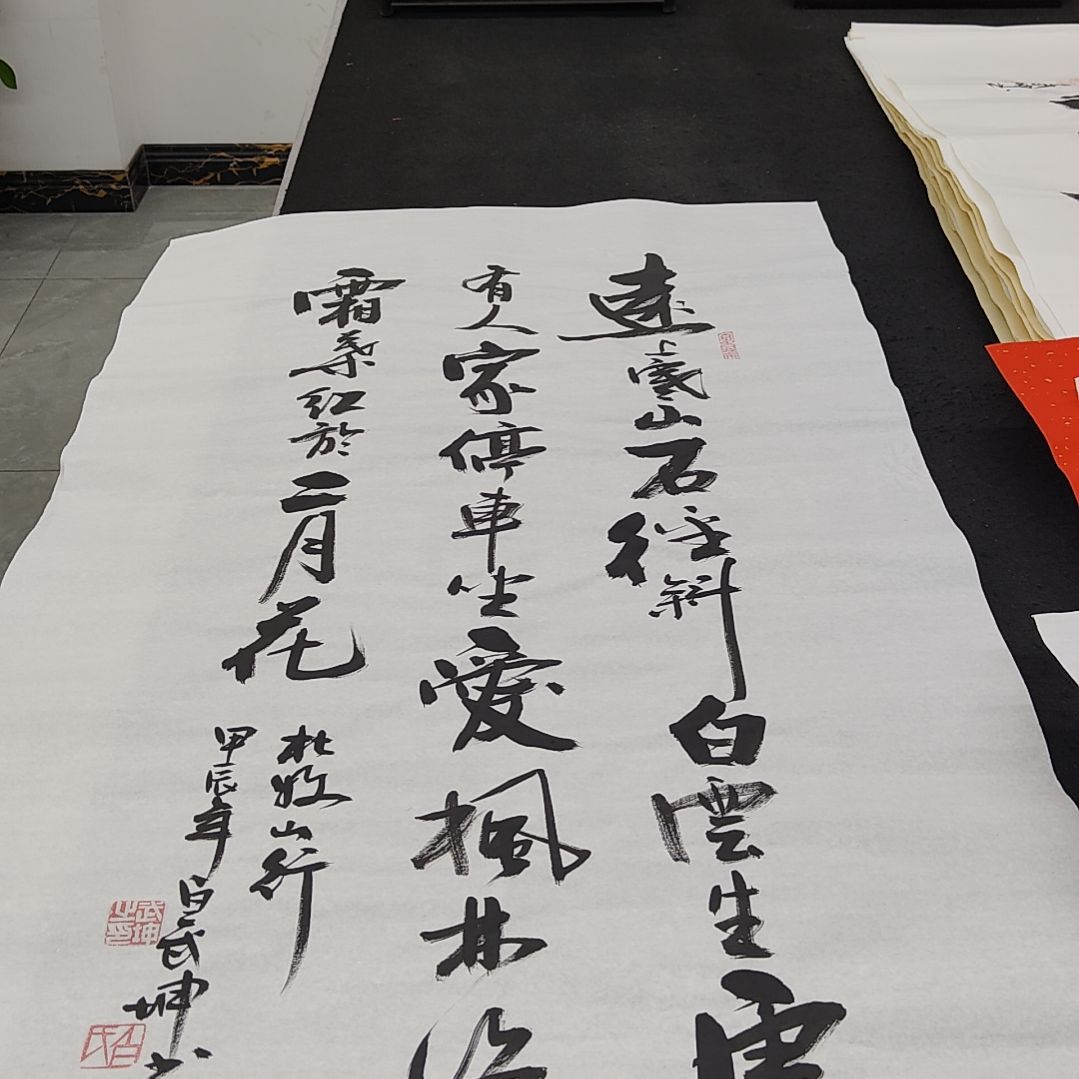 遠上寒山石徑斜白雲生處
有人家停車坐愛楓林
霜葉紅於二月花
杜牧山行
甲辰年白武坤
武坤之印
白氏